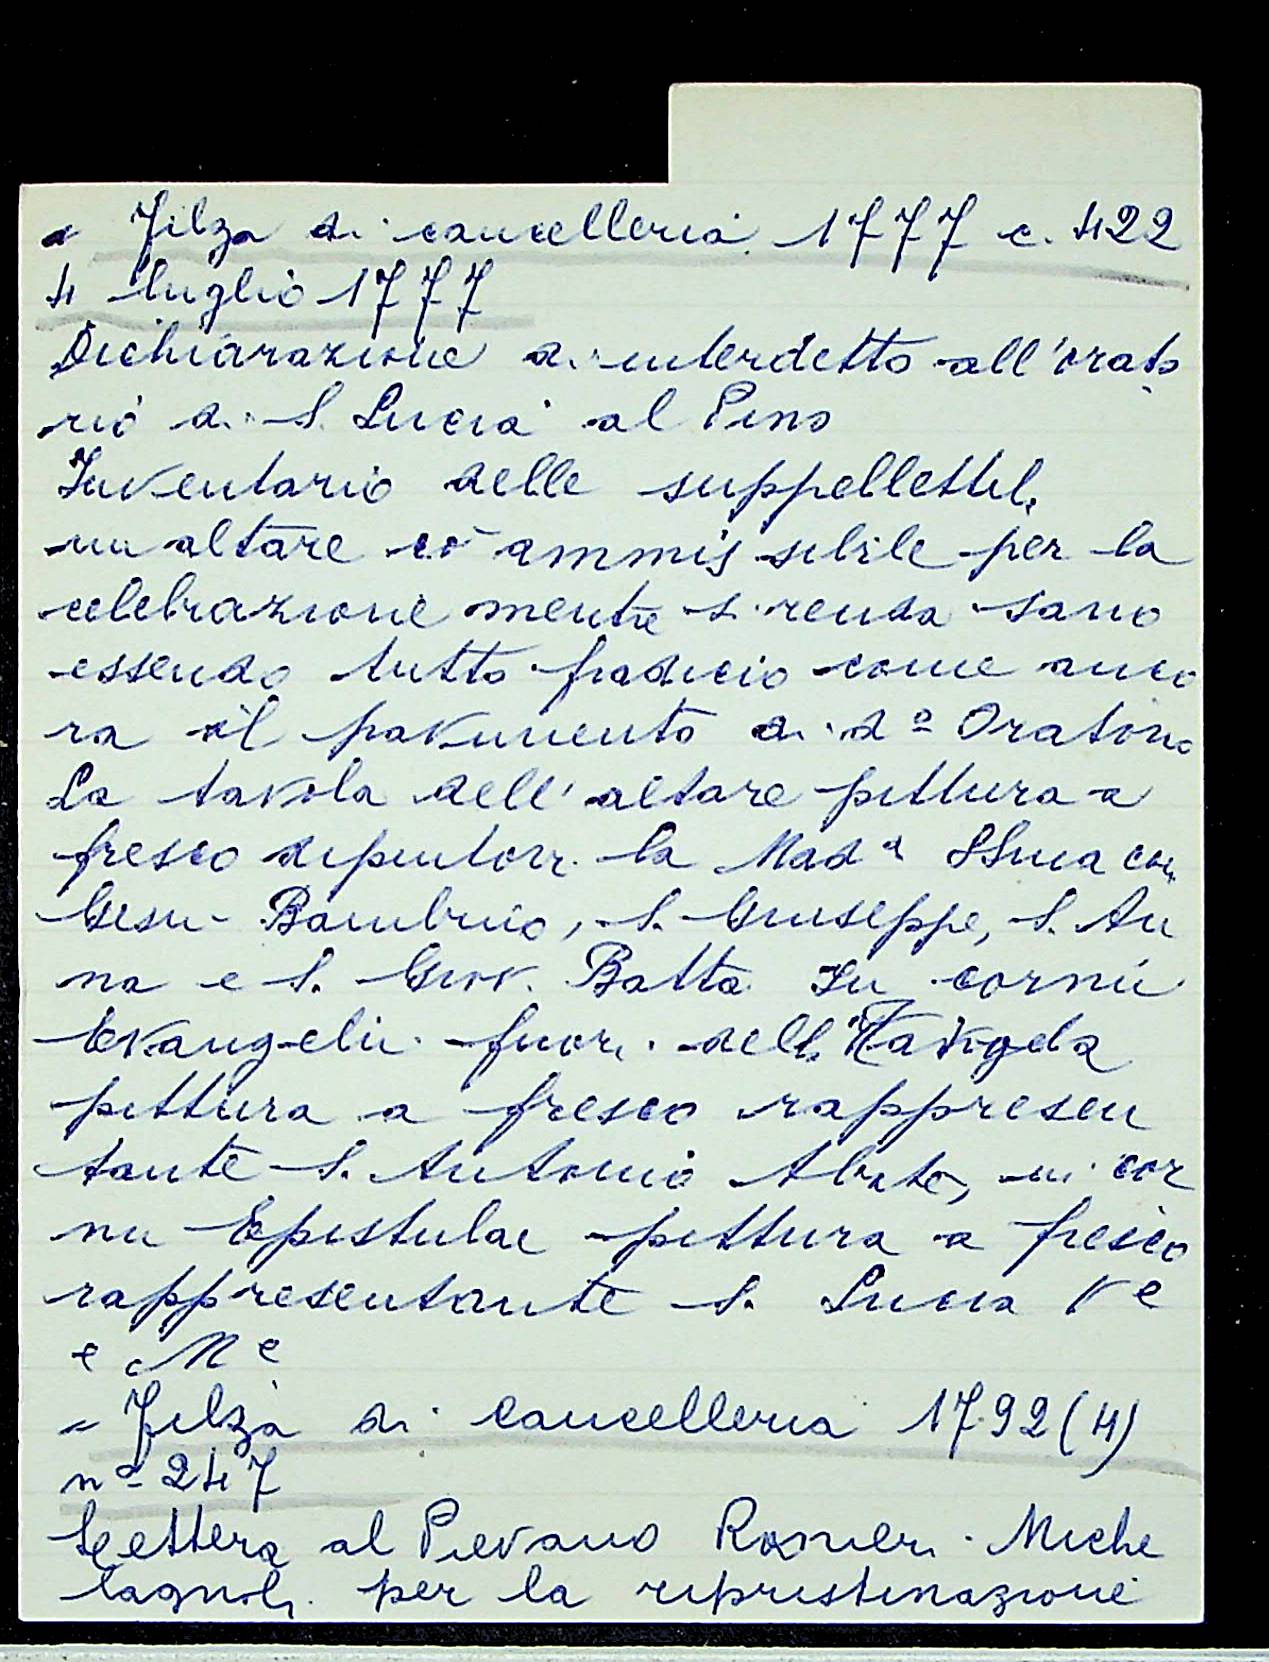 " Filza di cancelleria 1777 c. 422
4 luglio 1777
Dichiarazione di interdetto all'orato
rio di S. Lucia al Pino
Inventario delle suppellettili
un altare ammissibile per la
celebrazione mentre si renda sano
essendo tutto fradicio come anco
ra il pavimento di d.º Oratorio
La tavola dell'altare pittura a
fresco la Mad.ª SSma con
Gesu Bambino, S. Giuseppe, S. An
na e S. Giov. Batta In cornu
Evangelii fuori della Tavola
pittura a fresco rappresen
tante S. Antonio Abate, in cor
nu Epistulae pittura a fresco
rappresentante S. Lucia Ve
e Me
" Filza di cancelleria 1792 (4)
nº 247
Lettera al Pievano Ranieri Miche
lagnoli per la ripristinazione